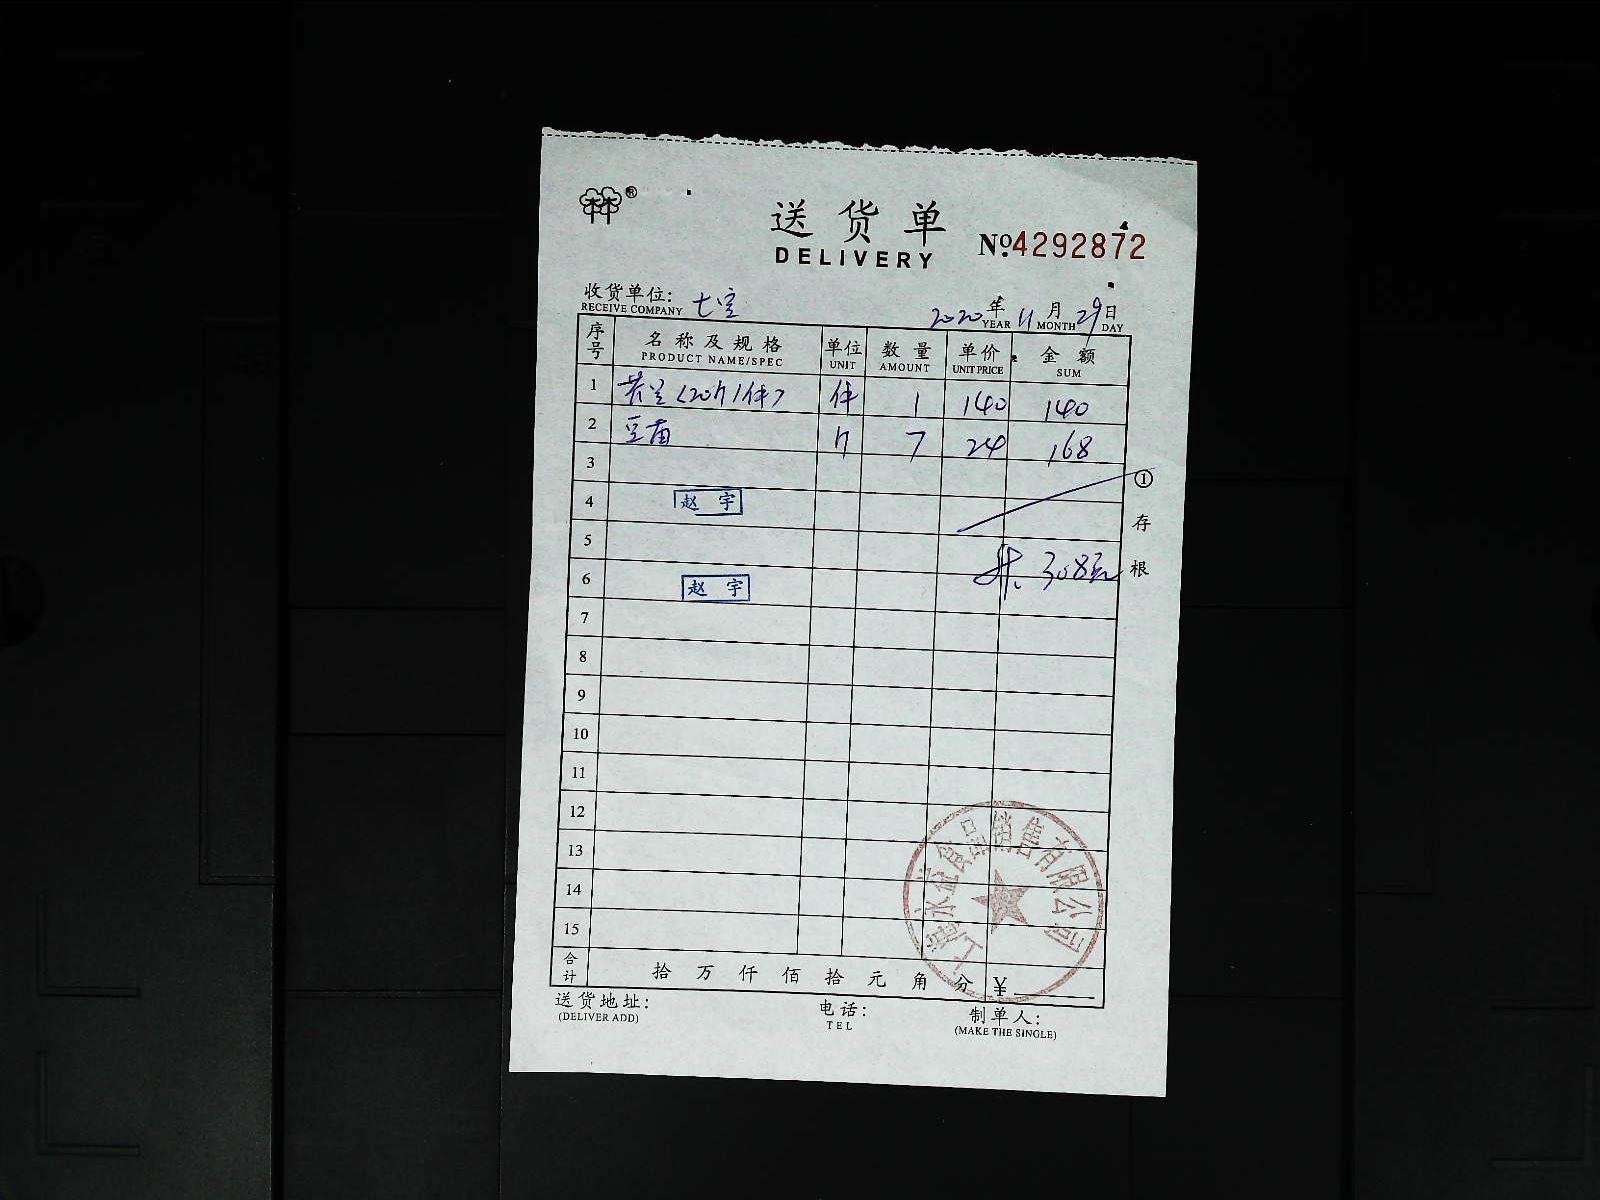 送货单
DELIVERY
№4292872
收货单位:
RECEIVE COMPANY 七宝
2020年11月29日
YEAR MONTH DAY
序号 名称及规格 单位 数量 单价 金额
PRODUCT NAME/SPEC UNIT AMOUNT UNIT PRICE SUM
1 芥兰(20斤/件) 件 1 140 140
2 豆苗 斤 7 24 168
3
4 赵宇
5
共 308元
6 赵宇
7
8
9
10
11
12
13
14
15
①存根
食品销售有限公司
合计 拾 万 仟 佰 拾 元 角 分 ¥
送货地址: 电话: 制单人:
(DELIVER ADD) TEL (MAKE THE SINGLE)